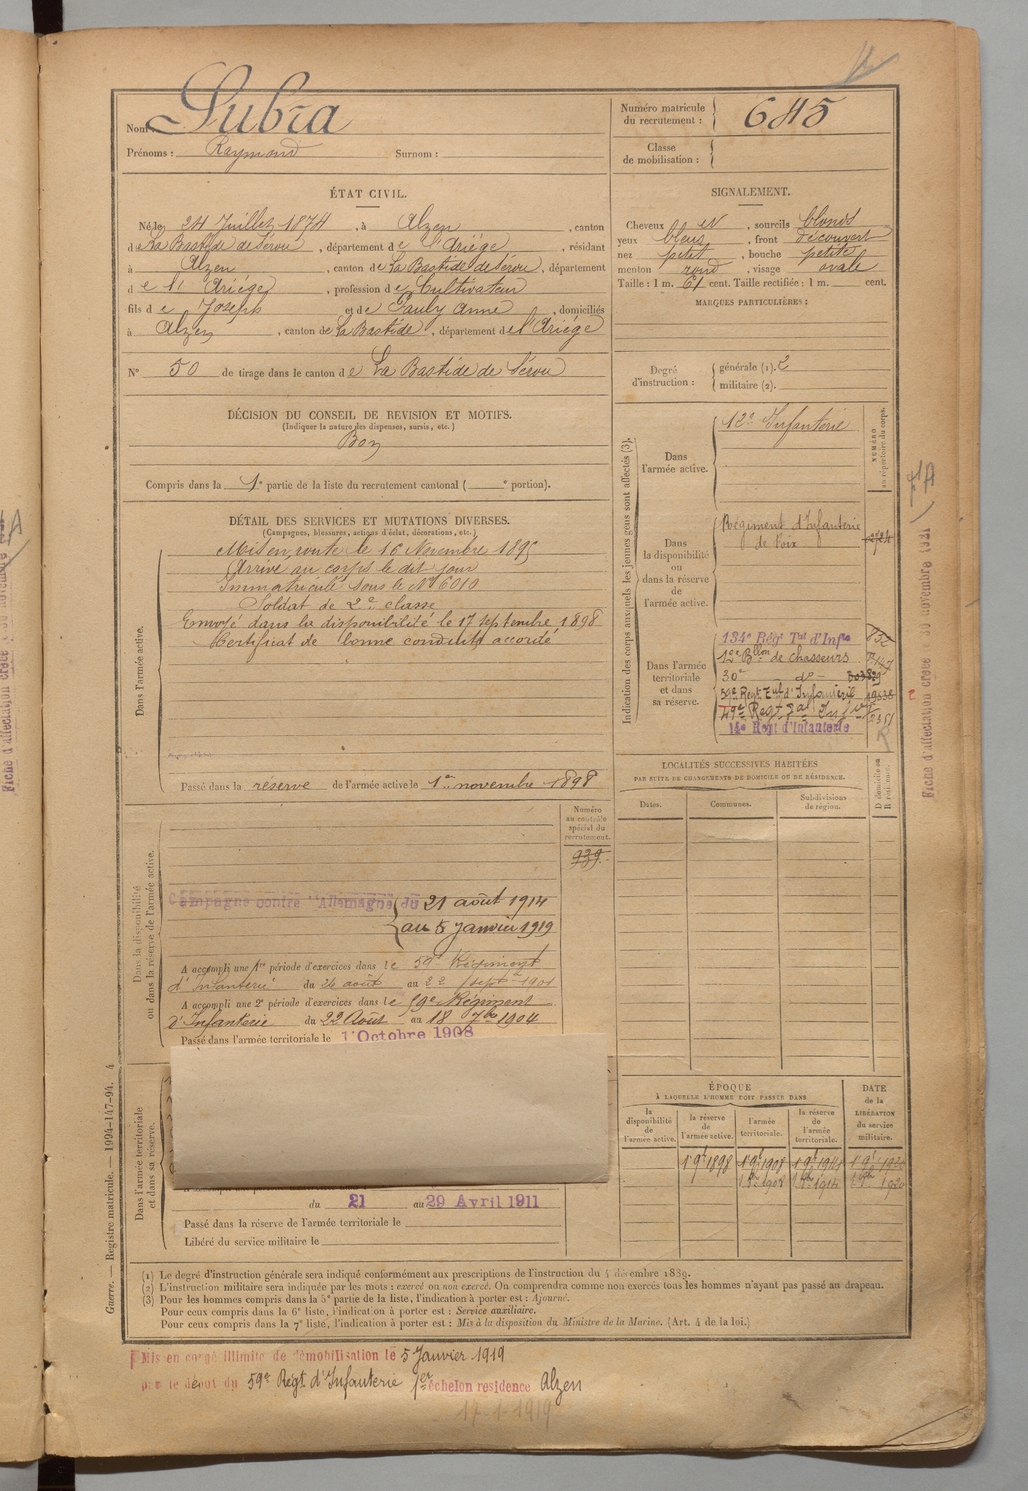 Nom : Subra
Prénoms : Raymond Surnom :
Numéro matricule du recrutement : 645
Classe de mobilisation :
ÉTAT CIVIL.
Né le 24 Juillet 1874, à Alzen, canton
de La Bastide de Sérou, département de l'Ariége, résidant
à Alzen, canton de La Bastide de Sérou, département
de l'Ariége, profession de Cultivateur
fils de Joseph et de Pauly Anne, domiciliés
à Alzen, canton de La Bastide, département de l'Ariége
N° 50 de tirage dans le canton de La Bastide de Sérou
SIGNALEMENT.
Cheveux et, sourcils blonds
yeux bleus, front découvert
nez petit, bouche petite
menton rond, visage ovale
Taille : 1 m. 61 cent. Taille rectifiée : 1 m. cent.
MARQUES PARTICULIÈRES :
Degré d'instruction :
générale (1). 2
militaire (2).
DÉCISION DU CONSEIL DE REVISION ET MOTIFS.
(Indiquer la nature des dispenses, sursis, etc.)
Bon
Compris dans la 1e partie de la liste du recrutement cantonal ( e portion).
DÉTAIL DES SERVICES ET MUTATIONS DIVERSES.
(Campagnes, blessures, actions d'éclat, décorations, etc.)
Dans l'armée active.
Mis en route le 16 Novembre 1895
Arrivé au corps le dit jour
Immatriculé sous le N° 6010
Soldat de 2e classe
Envoyé dans la disponibilité le 17 septembre 1898
Certificat de bonne conduite accordé
Passé dans la réserve de l'armée active le 1er novembre 1898
Indication des corps auxquels les jeunes gens sont affectés (3).
NUMÉRO au répertoire du corps.
Dans l'armée active.
12e Infanterie
Dans la disponibilité ou dans la réserve de l'armée active.
Régiment d'Infanterie
de Foix
Dans l'armée territoriale et dans sa réserve.
134e Régt Tal d'Infie
12e Bllon de chasseurs
30e - do -
59e Régt Tal d'Infanterie
49e Régt Tal Infie
14e Regt d'Infanterie
Fiche d'affectation créée 30 novembre 1921
LOCALITÉS SUCCESSIVES HABITÉES
PAR SUITE DE CHANGEMENTS DE DOMICILE OU DE RÉSIDENCE.
Dates. Communes. Subdivisions de région. D domicile ou R résidence.
Dans la disponibilité ou dans la réserve de l'armée active.
Numéro au contrôle spécial du recrutement.
939
Campagne contre l'Allemagne du 21 août 1914
au 5 janvier 1919
A accompli une 1re période d'exercices dans le 59e Régiment
d'Infanterie du 26 août au 22 septe 1901
A accompli une 2e période d'exercices dans le 59e Régiment
d'Infanterie du 22 Août au 18 7bre 1904
Passé dans l'armée territoriale le 1er Octobre 1908
Dans l'armée territoriale et dans sa réserve.
du 21 au 29 Avril 1911
Passé dans la réserve de l'armée territoriale le
Libéré du service militaire le
ÉPOQUE
À LAQUELLE L'HOMME DOIT PASSER DANS
la disponibilité de l'armée active.
la réserve de l'armée active.
l'armée territoriale.
la réserve de l'armée territoriale.
DATE de la LIBÉRATION du service militaire.
1 9e 1898 1 9e 1908 1 9e 1914 1 9e 1920
(1) Le degré d'instruction générale sera indiqué conformément aux prescriptions de l'instruction du 4 décembre 1889.
(2) L'instruction militaire sera indiquée par les mots : exercé ou non exercé. On comprendra comme non exercés tous les hommes n'ayant pas passé au drapeau.
(3) Pour les hommes compris dans la 5e partie de la liste, l'indication à porter est : Ajourné.
Pour ceux compris dans la 6e liste, l'indication à porter est : Service auxiliaire.
Pour ceux compris dans la 7e liste, l'indication à porter est : Mis à la disposition du Ministre de la Marine. (Art. 4 de la loi.)
Guerre. — Registre matricule. — 1994-147-94. 4
Mis en congé illimité de démobilisation le 5 Janvier 1919
par le dépôt du 59e Régt d'Infanterie 1er échelon residence Alzen
17-1-1919